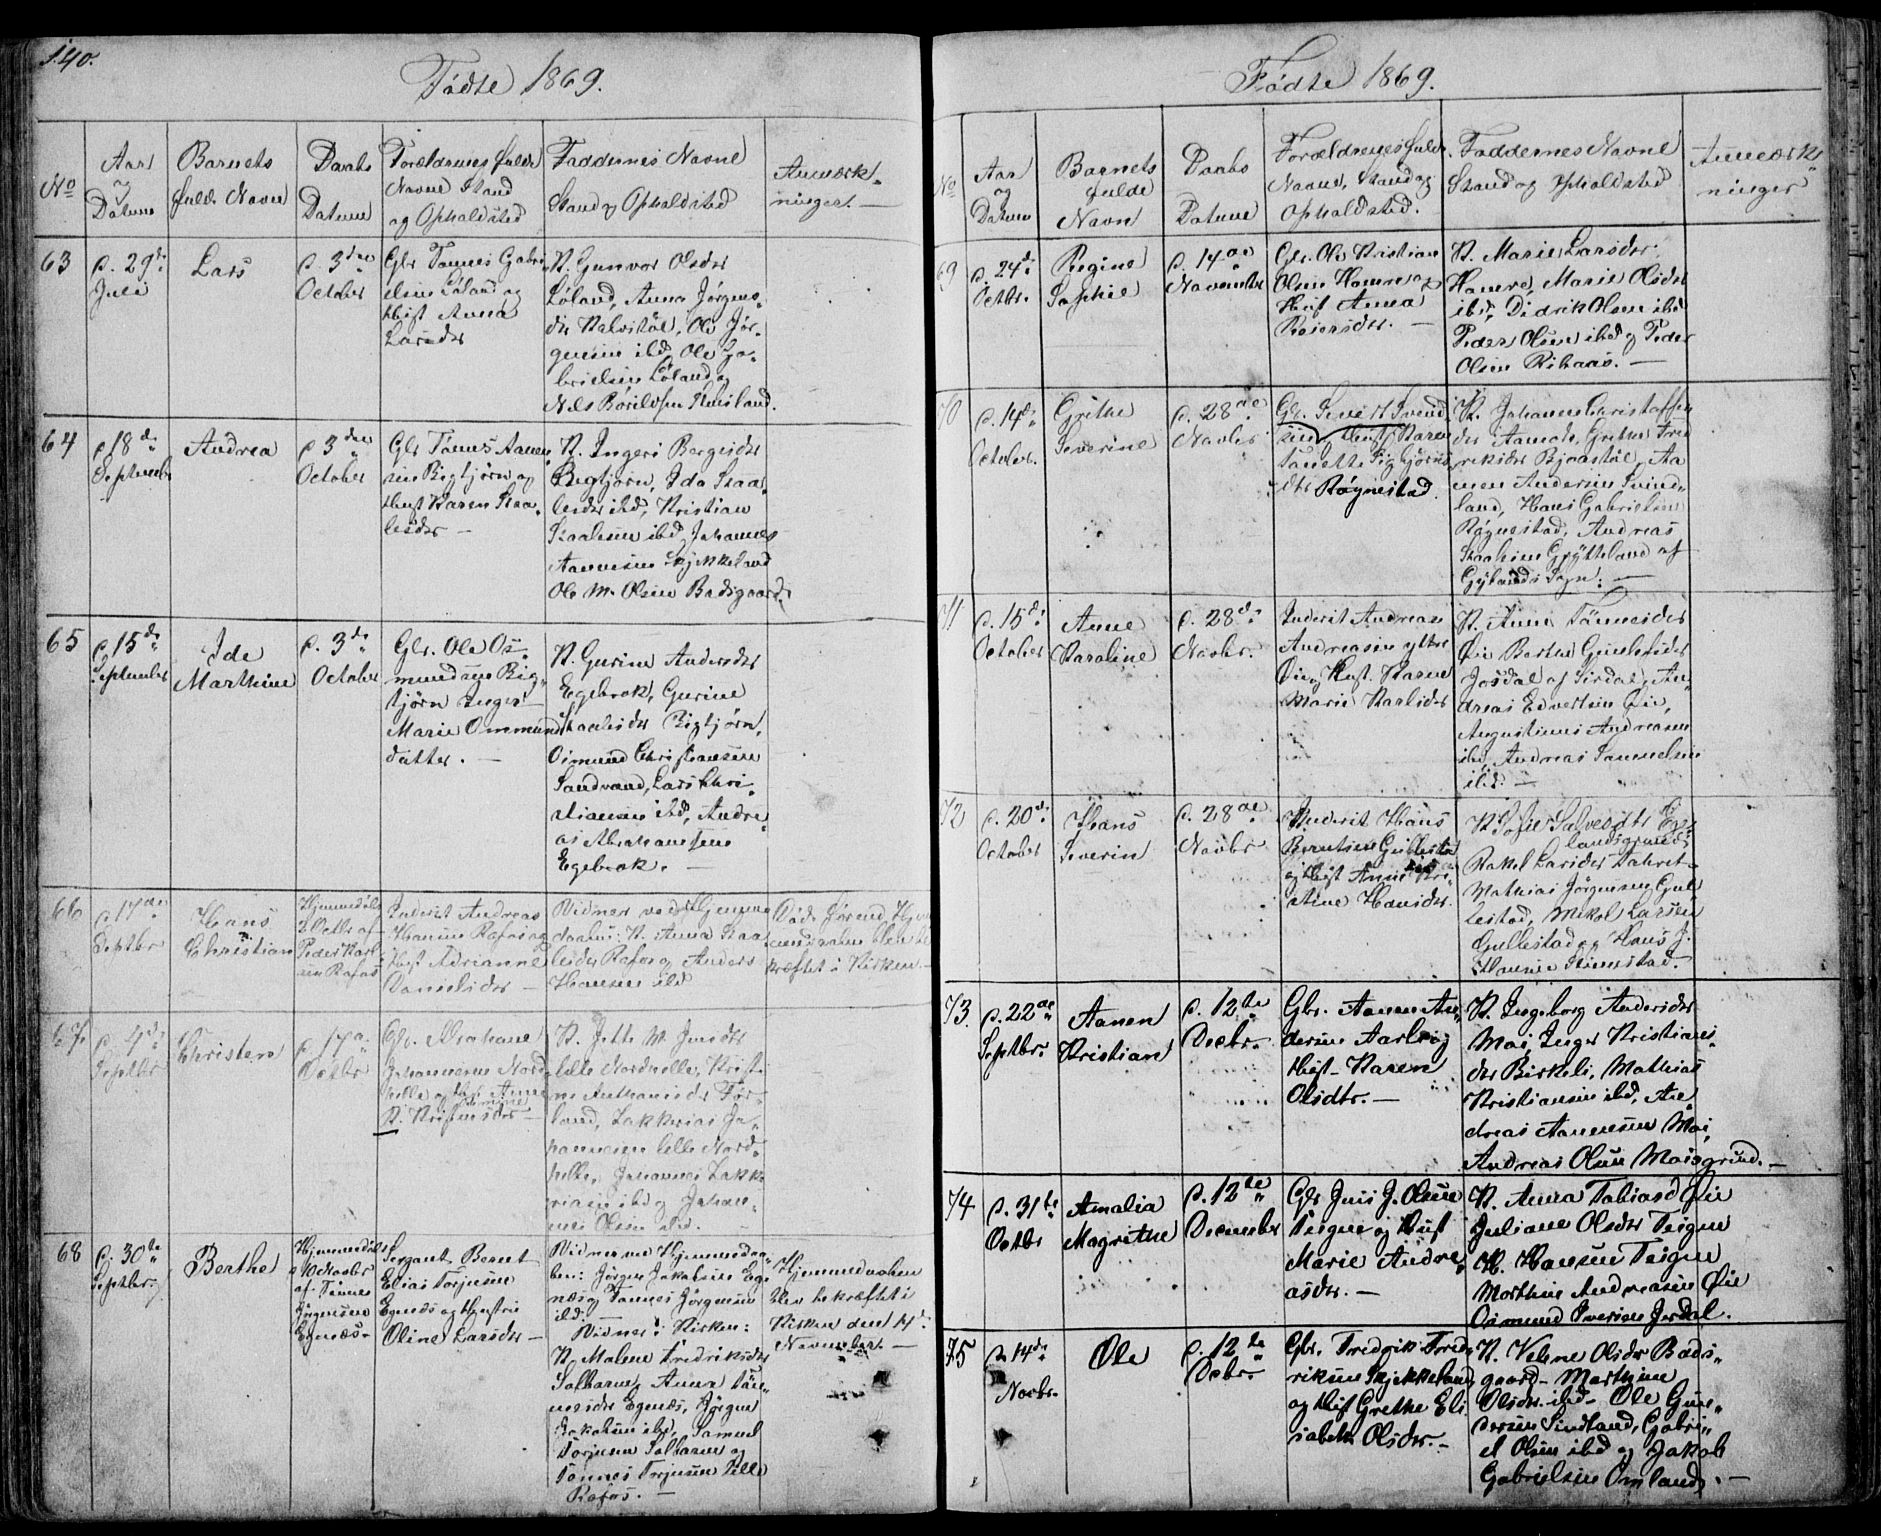 140.
Födte 1869.
No
Aar
og
Datum
Barnets
fulde Navn
Daabs
Datum
Forældrenes fulde
Navne Stand
og Opholdsted
Faddernes Navne
Stand og Opholdsted
Anmærk-
ninger. —
63
d. 29de
Juli
Lars
d. 3die
October
Gbr Tønnes Gabri
elsen Löland og
Hust Anna
Larsdtr
K. Gunvor Olsdtr
Löland, Anna Jörgens-
dtr Kalvstöl, Ole Jör-
gensen ibd, Ole Ga-
brielsen Löland og
64
d. 18de
September
Andrea
d. 3die
October
Gbr Tönnes Aanen
sen Bigtjörn og
Hust Karen Staa-
lesdtr —
K. Ingeri Bergesdtr
Bigtjörn, Ida Staa-
lesdtr ibd, Kristian
Staalesen ibd, Johannes
Aanensen Skjekkeland
Ole M. Olsen Badsgaard.
65
d. 15de
September
Ide
Marthine
d. 3de
October
Gbr. Ole Os-
mundsen Big-
tjörn Inger
Marie Ommund
datter. —
K. Gurine Andersdtr
Egebrok, Gurine
Staalesdtr Bigtjörn,
Osmund Christiansen
Sandvand, Lars Chri-
stiansen ibd, Andre-
as Abrahamsen
Egebrok. —
66
d. 17de
Septbr
Hans
Christian
Hjemmedöbt
2 Octbr af
Peder Karl-
sen Rafos
Inderst Andreas
Hansen Rafos og
Hust Adrianne
Danielsdtr —
Vidner ved Hjemme
daaben: K. Anna Staa-
lesdtr Rafos og Anders
Hansen ibd
Döde förend Hjem
medaaben blev be
kræftet i Kirken. —
67.
d. 4de
Septbr
Christen
d. 17de
Octbr
Gbr. Abraham
Johannesen Nord-
helle og Hust Anne
K. Kristensdtr —
K. Jette M. Jensdtr
lille Nordhelle, Kristi-
ne Anthonisdtr För-
land, Zakkerias Jo-
hannesen lille Nord-
helle, Johannes Zakk-
riasen ibd og Johan-
nes Olsen ibd. —
68
d. 30te
Septbr
Berthe
Hjemmedöbt
Novbr
af Tönnes
Jörgensen
Egenæs —
Sergant Bernt
Elias Torjusen
Egenæs og Hustrue
Oline Larsdtr —
Vidner ved Hjemmedaa-
ben: Jörgen Jakobsen Ege
næs og Tönnes Jörgensen
ibd. —
Vidner i Kirken:
K. Malene Fredriksdtr
Solbarne, Anna Tön-
nesdtr Egenæs, Jörgen
Jakobsen ibd, Samuel
Torjusen Solbarne og
Tönnes Torjusen Lille
Rafos. —
Hjemmedaaben
blev bekræftet i
Kirken den 14de
November. —
Födte 1869.
No
Aar
og
Datum
Barnets
fulde
Navn
Daabs
Datum
Forældrenes fulde
Navne, Stand og
Opholdsted.
Faddernes Navne
Stand og Opholdsted
Anmærk-
ninger
69
d. 24de
Octbr.
Regine
Sophie
d. 14de
November
Gbr. Ole Kristian
Olsen Hamre og
Hust Anna
Reiersdtr. —
K. Marie Larsdtr.
Hamre, Marie Olsdtr
ibd, Didrik Olsen ibd
Peder Olsen ibd og Peder
Olsen Risaas. —
70
d. 14de
October.
Grethe
Severine
d. 28de
Novbr
Gbr. Severt Svend
sen Hust Karen
Tonette Sigbjörns
dtr Røgnestad.
K. Johanne Christoffers
dtr Aamodt, Grethe Fred
riksdtr Bjaastöl, Aa
nen Andersen Svind-
land, Hans Gabrielsen
Røgnestad, Andreas
Staalesen Grötteland af
Gylands Sogn. —
71
d. 15de
October
Anne
Karoline
d. 28de
Novbr.
Inderst Andreas
Andreasen yttre
Öie og Hust. Karen
Marie Karlsdtr
K. Anne Tönnesdtr
Öie Berthe Gunleksdtr
Josdal af Sirdal, An-
dreas Edvertsen Öie,
Augustinus Andreasen
ibd, Andreas Samuelsen
ibd. —
72
d. 20de
October
Hans
Severin
d. 28de
Novbr
Inderst Hans
Berntsen Gullestad
og Hust Anne Kri-
stine Hansdtr.
K. Sofie Salvesdtr Ege-
landsgrund,
Rakel Larsdtr
Mathias Jörgensen Gul
lestad, Mikal Larsen
Gullestad og Hans J.
73.
d. 22de
Septbr.
Aanen
Kristian
d. 12te
Decbr.
Gbr. Aanen An-
dersen Aarli og
Hust. Karen
Olsdtr. —
K. Ingeborg Andersdtr
Moi, Inger Kristians-
dtr Birkeli, Mathias
Kristiansen ibd, An
dreas Aanensen Moi,
Andreas Olsen Moisgrund. —
74
d. 31te
Octbr
Amalia
Magrethe
d. 12te
December
Gbr Jens J. Olsen
Teigen og Hust
Marie Andre
asdtr. —
K. Anna Tobiasd Öie
Juliane Olsdtr Teigen
H. Hansen Teigen
Morthen Andreasen Öie
Osmund Iversen Jerdal.
75
d. 14de
Novbr.
Ole
d. 12te
Decbr.
Gbr. Fredrik Fred-
riksen Skjekkeland
og Hust Grethe Eli
sabeth Olsdtr. —
K. Velene Olsdtr Bads-
gaard. Marthine
Olsdtr. ibd. Ole Gun-
dersen Sindland, Gabri-
el Olsen ibd og Jakob
Gabrielsen Omland. —